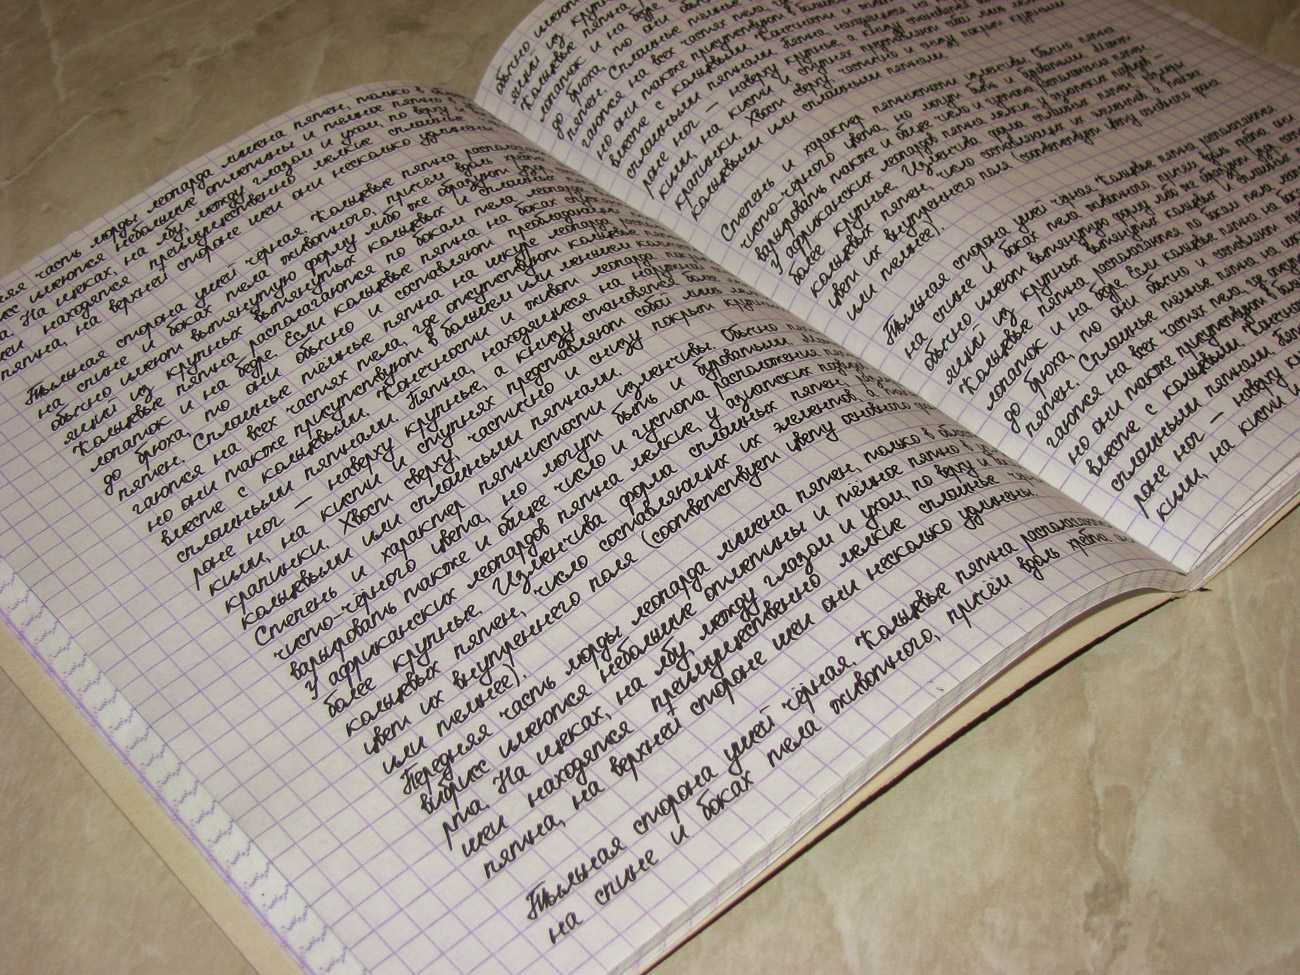 часть морды леопарда лишена пятен, только в
имеются небольшие отметины и тёмное пятно в
На щеках, на лбу, между глазом и ухом, по верху
шеи находятся преимущественно мелкие сплошные
пятна, на верхней стороне шеи они несколько удлинены
Тыльная сторона ушей чёрная. Кольцевые пятна
на спине и боках тела животного, причём вдоль
обычно имеют вытянутую форму либо же образуют
линий из крупных вытянутых кольцевых и сплошных
Кольцевые пятна располагаются по бокам тела
лопаток и на бедре. Если кольцевые пятна на боках
до брюха, то они обычно и составляют преобладающее
пятен. Сплошные тёмные пятна на шкуре леопарда
гаются на всех частях тела, где отсутствуют кольцевые
но они также присутствуют в большем или меньшем
вместе с кольцевыми. Конечности и живот леопарда
сплошными пятнами. Пятна, находящиеся на
роне ног — наверху крупные, а книзу становятся
кими, на кисти и ступнях представляют собой
крапинки. Хвост сверху, частично и снизу покрыт
кольцевыми или сплошными пятнами.
Степень и характер пятнистости изменчивы. Обычно
чисто-чёрного цвета, но могут быть и буроватыми.
варьировать также и общее число и густота расположения
У африканских леопардов пятна мелкие, у азиатских
более крупные. Изменчива форма сплошных пятен,
кольцевых пятен, число составляющих их элементов, а
цвет их внутреннего поля (соответствует цвету основного
или темнее).
Передняя часть морды леопарда лишена пятен, только в
вибрисс имеются небольшие отметины и тёмное пятно в
рта. На щеках, на лбу, между глазом и ухом, по верху и
шеи находятся преимущественно мелкие сплошные
пятна, на верхней стороне шеи они несколько удлинены
Тыльная сторона ушей чёрная. Кольцевые пятна
на спине и боках тела животного, причём вдоль хребта
обычно имеют
линий из
Кольцевые пятна
лопаток и на бедре
до брюха, то они
пятен. Сплошные тёмные
гаются на всех частях тела
но они также присутствуют в
вместе с кольцевыми. Конечности и
сплошными пятнами. Пятна, находящиеся на
роне ног — наверху крупные, а книзу
кими, на кисти и ступнях представляют
крапинки. Хвост сверху, частично и снизу покрыт крупными
кольцевыми или сплошными пятнами
Степень и характер пятнистости изменчивы. Обычно пятна
чисто-чёрного цвета, но могут быть и буроватыми. Может
варьировать также и общее число и густота расположения пятен
У африканских леопардов пятна мелкие, у азиатских
более крупные. Изменчива форма сплошных пятен
кольцевых пятен, число составляющих их элементов, а также
цвет их внутреннего поля (соответствует цвету основного
или темнее).
Тыльная сторона ушей чёрная. Кольцевые пятна располагаются
на спине и боках тела животного, причём вдоль хребта они
обычно имеют вытянутую форму либо же образуют
линий из крупных вытянутых кольцевых и сплошных
Кольцевые пятна располагаются по бокам тела
лопаток и на бедре. Если кольцевые пятна на
до брюха, то они обычно и составляют
пятен. Сплошные тёмные пятна на
гаются на всех частях тела, где
но они также присутствуют в
вместе с кольцевыми. Конечности
сплошными пятнами
роне ног — наверху
кими, на кисти и